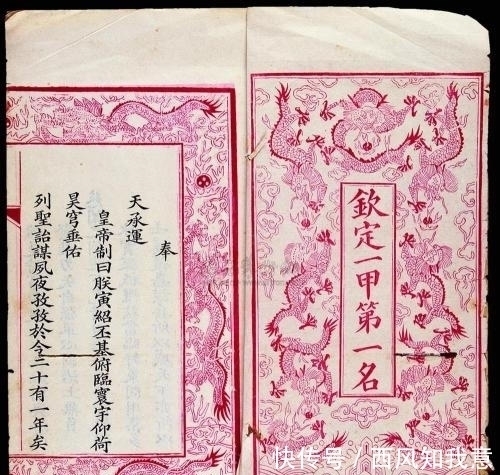 欽定一甲第一名
奉
天承運
皇帝制曰朕寅紹丕基俯臨寰宇仰荷
昊穹垂佑
列聖詒謀夙夜孜孜於今二十有一年矣
快传号／西风知我意